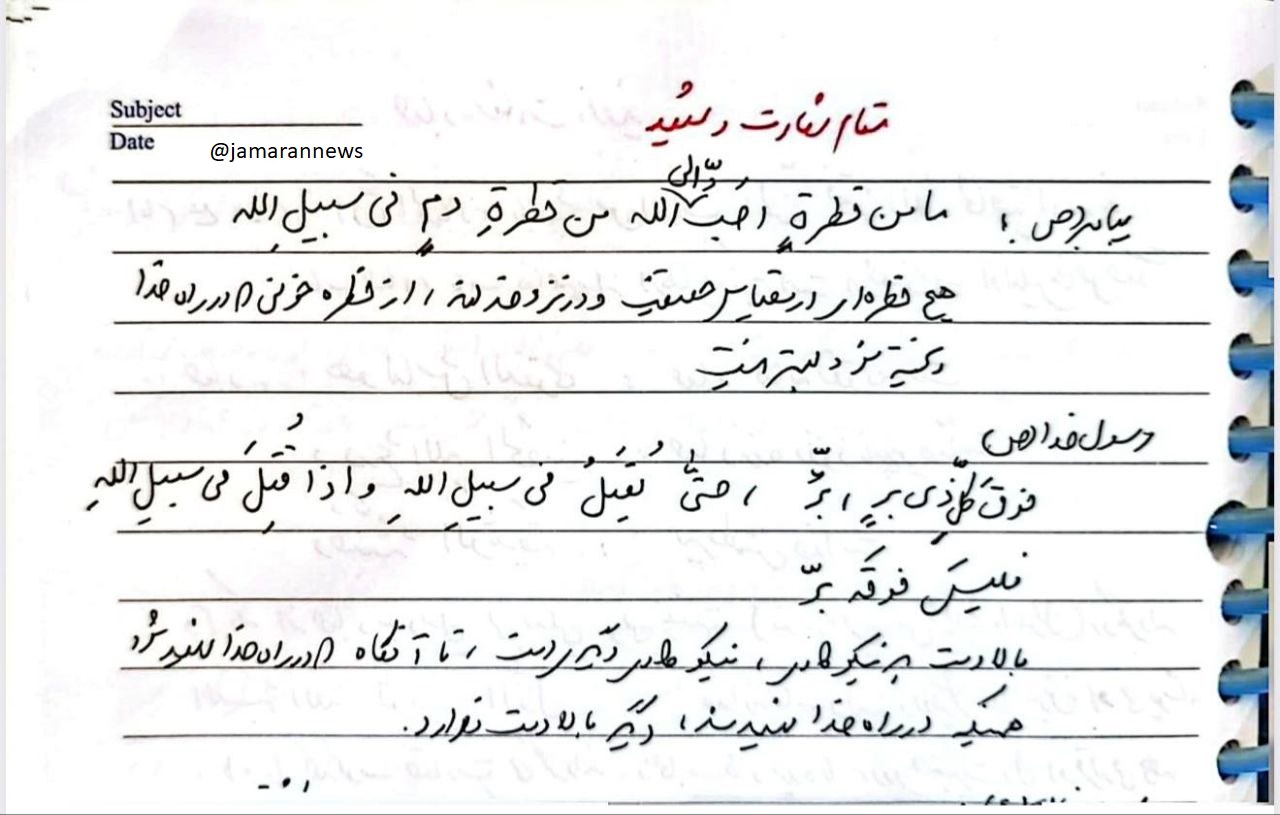 Subject
Date
@jamarannews
مقام شهادت و شهید
پیامبر (ص) : ما من قطرةٍ اَحَبَّ الی الله من قطرةِ دمٍ فی سبیلِ الله
هیچ قطره‌ای در مقیاس حقیقت و در نزد خدا ، از قطره خونی که در راه خدا
ریخته شود بهتر نیست
رسول خدا (ص)
فوقَ کلِّ ذی برٍ ، برٌّ ، حتّی یُقتَلُ فی سبیلِ اللهِ و اذا قُتِلَ فی سبیلِ اللهِ
فلیسَ فوقَه برّ
بالادست هر نیکوکاری ، نیکوکار دیگری است ، تا آنگاه که در راه خدا شهید شود
همینکه در راه خدا شهید شد ، دیگر بالادست ندارد .